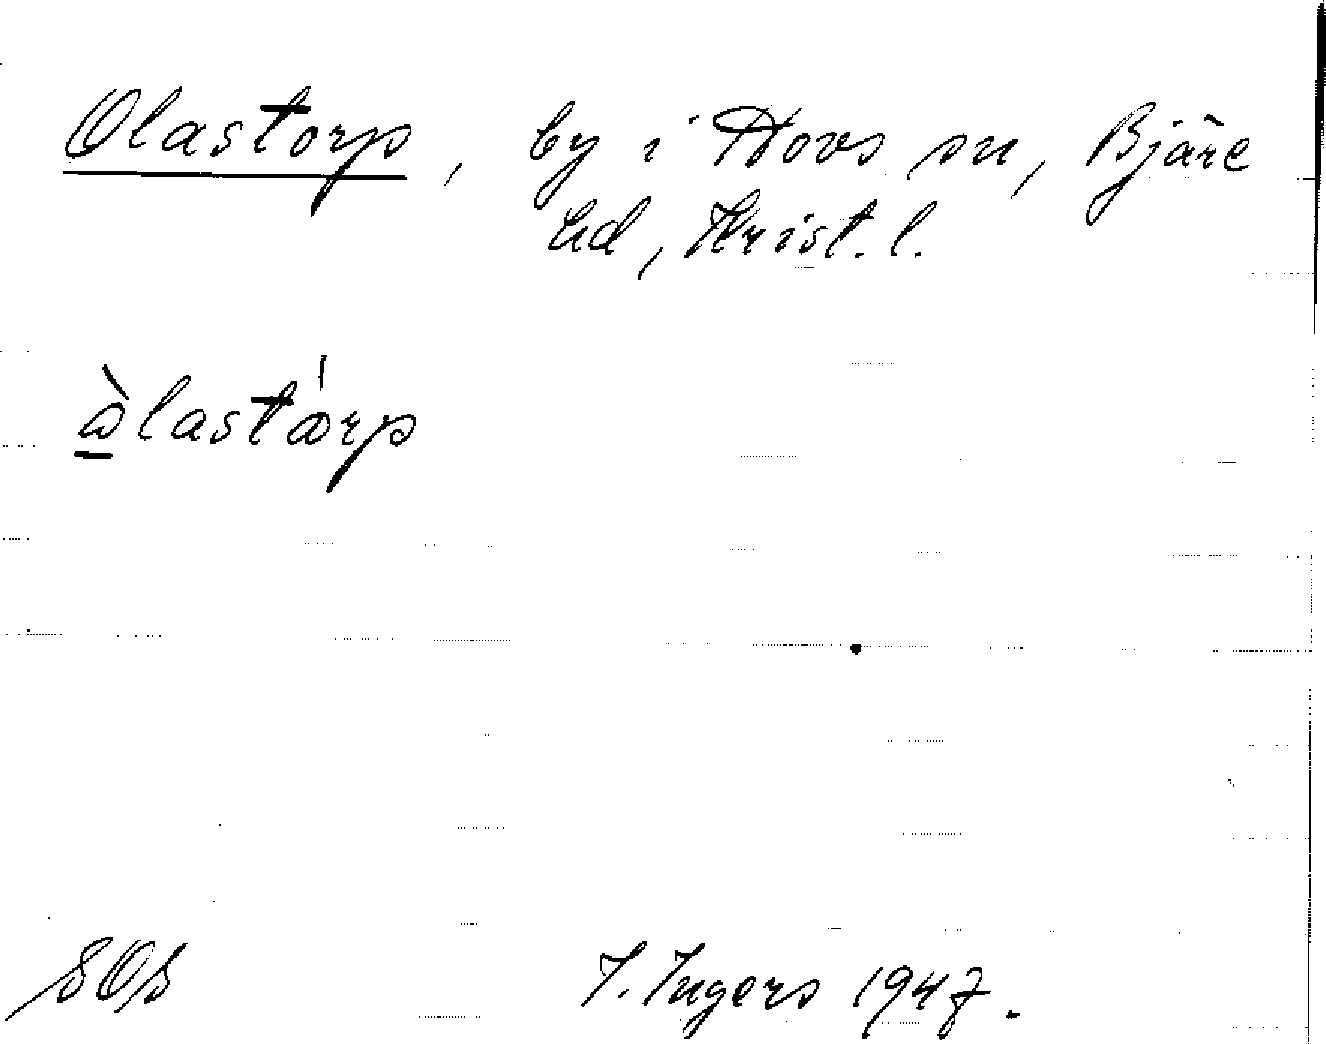 Olastorp, by i Hovs sn, Bjäre
hd, Krist. l.
àlastárp
SOS I. Ingers 1947.